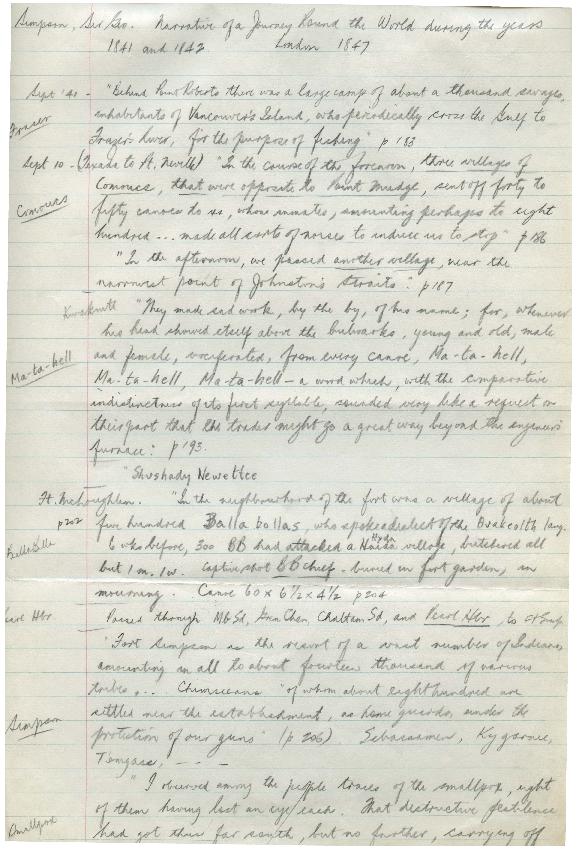 Simpson, Sir Geo. Narrative of a Journey Round the World during the years
1841 and 1842 London 1847
Sept '41 - "Behind Point Roberts there was a large camp of about a thousand savages,
inhabitants of Vancouver's Island, who periodically cross the Gulf to
Frazer
Frazer's River, for the purpose of fishing" p 183
Sept 10 - (Texada to Ft. Newitti) "In the course of the forenoon, three villages of
Comoucs, that were opposite to Point Mudge, sent off forty to
Comoucs
fifty canoes to us, whose inmates, amounting perhaps to eight
hundred ... made all sorts of noises to induce us to stop" p 186
"In the afternoon, we passed another village, near the
narrowest point of Johnston's Straits". p 187
Kwakiutl "They made sad work, by the by, of his name; for, whenever
his head showed itself above the bulwarks, young and old, male
and female, vociferated, from every canoe, Ma-ta-hell,
Ma-ta-hell
Ma-ta-hell, Ma-ta-hell - a word which, with the comparative
indistinctness of its first syllable, sounded very like a request on
their part that the trader might go a great way beyond the engineer's
furnace." p 193.
"Shushady Newettee
Ft. McLoughlin. "In the neighbourhood of the fort was a village of about
p 202 five hundred Balla bollas, who spoke a dialect of the Quakeolth lang.
6 wks before, 300 BB had attacked a Hyda village, butchered all
Bella Bella
but 1 m. 1 w. Captive shot BB chief - buried in fort garden, in
mourning. Canoe 60 x 6½ x 4½ p 204
Passed through Mb Sd, Gren Chan, Chatham Sd, and Pearl Hbr, to Ft Simp
"Fort Simpson is the resort of a vast number of Indians,
amounting in all to about fourteen thousand of various
tribes ... Chimseeans "of whom about eight hundred are
settled near the establishment, as home guards, under the
Simpson
protection of our guns" (p 206). Sebassamen, Kygarnie,
Tongass, - - -
"I observed among the people traces of the smallpox, eight
of them having lost an eye each. That destructive pestilence
Smallpox
had got thus far south, but no further, carrying off